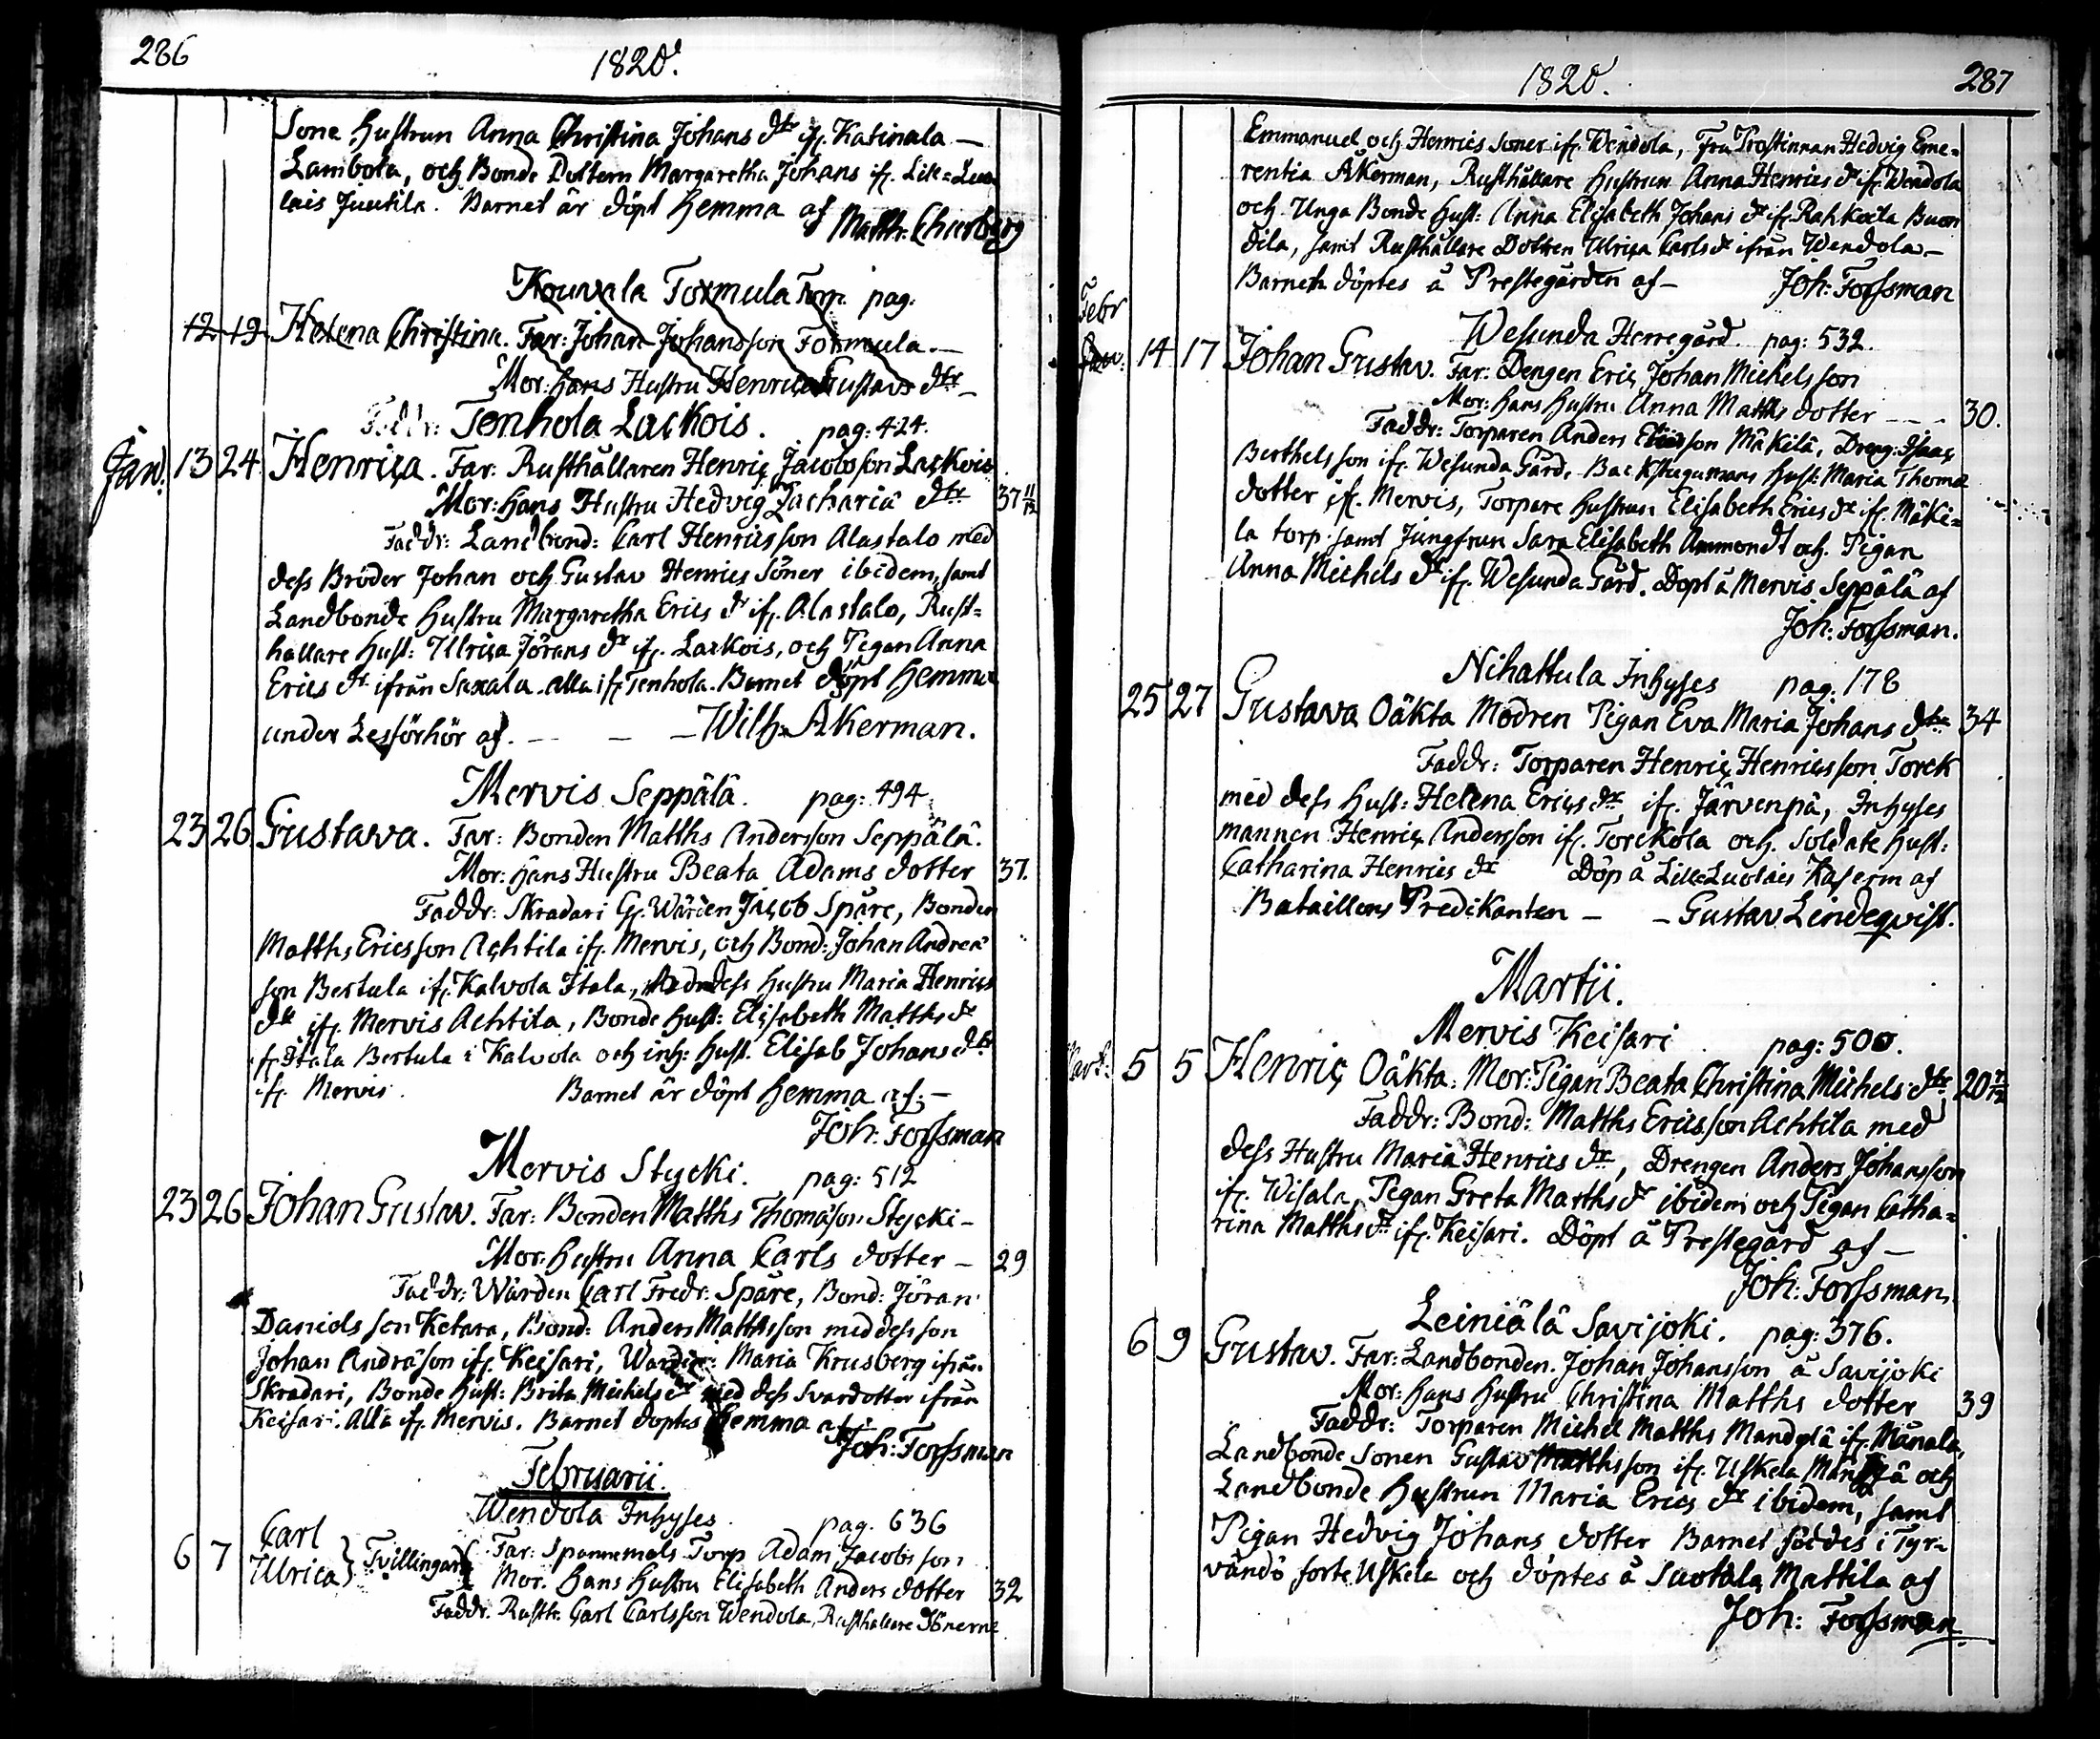 286
1820.
Sone Hustrun Anna Christina Johans dtr if. Katinala —
Lambola, och Bonde Dottern Margaretha Johans if. Lill=Luo
lais Juutila. Barnet är döpt hemma af
Matth. Churberg
Kouvala Tormula Torp. pag.
12 19 Helena Christina. Far: Johan Johansson Tormula. —
Mor: hans Hustru Henrica Gustavs dtr —
Faddr: Tenhola Lackois. pag: 424.
Jan. 13 24 Henrica. Far: Rusthållaren Henric Jacobsson Lackois
Mor: hans Hustru Hedvig Zachariä dtr 37 11/12
Faddr: Landbond: Carl Henricsson Alastalo med
dess Bröder Johan och Gustav Henrics Söner ibidem, samt
Landbonde Hustru Margaretha Erics dr if. Alastalo, Rust=
hållare Hust: Ulrica Jörans dr if. Lackois, och Pigan Anna
Erics dr ifrån Saxala. alla if. Tenhola. Barnet döpt hemma
under Lesförhör af. — — — Wilh. Åkerman.
Mervis Seppälä. pag: 494
23 26 Gustava. Far: Bonden Matths Andersson Seppälä.
Mor: hans Hustru Beata Adams dotter 37.
Faddr: Skradari G. Wärden Jacob Spåre, Bonden
Matths Ericsson Achtila if. Mervis, och Bond: Johan Andreä
son Bertula if. Kalvola Itala, Med dess Hustru Maria Henrics
dtr if. Mervis Achtila, Bonde Hust: Elisabeth Matths dr
if. Itala Bertula i Kalvola och inh: Hust. Elisab Johans dtr
if. Mervis. Barnet är döpt hemma af. —
Joh: Forssman
Mervis Stycki. pag: 512
23 26 Johan Gustav. Far: Bonden Matths Thomasson Stycki —
Mor: Hustru Anna Carls dotter — 29
Faddr: Wärden Carl Fredr: Spåre, Bond: Jöran
Daniels son Ketara, Bond: Anders Matthsson med dess son
Johan Andräson if. Keisari, Maria Krusberg ifrån
Skradari, Bonde Hust: Brita Michels dr med dess Svärdotter ifrån
Keisari. Alla if. Mervis. Barnet döptes hemma af
Joh: Forssman
Februarii.
Wendola Inhyses. pag. 636
6 7 Carl
Ulrica } Tvillingar { Far: Spannemåls Torp Adam Jacobsson
Mor. Hans Hustru Elisabeth Anders dotter 32
Faddr. Rusth. Carl Carlsson Wendola, Rusthållare Sönerne
1820.
287
Emmanuel och Henrics söner if. Wendola, Fru Prostinnan Hedvig Eme=
rentia Åkerman, Rusthållare Hustrun Anna Henrics dr if. Wendola
och Unga Bonde Hust: Anna Elisabeth Johans dr if. Rahkoila Buon
dila, samt Rusthållare Dottren Ulrica Carls dr ifrån Wendola —
Barneth döptes å Prestegården af — Joh: Forssman
Febr
Jan.
Wesunda Herregård. pag: 532.
14 17 Johan Gustav. Far: Dengen Eric Johan Michelsson
Mor: Hans Hustru Anna Matths dotter — — 30.
Faddr: Torparen Anders Ericsson Mäkilä, Dreng: Isaac
Berthelsson if. Wesunda Gård, Backstugumans Hust: Maria Thomä
dotter if. Mervis, Torpare Hustrun Elisabeth Erics dr if. Mäki=
la torp. samt Jungfrun Sara Elisabeth Ammondt och Pigan
Anna Michels dr if. Wesunda Gård. Döpt å Mervis Seppälä af
Joh: Forssman.
Nihattula Inhyses pag. 178
25 27 Gustava Oäkta Modren Pigan Eva Maria Johans dtr 34
Faddr: Torparen Henric Henricsson Torck
med dess Hust: Helena Erics dr if. Järvenpä, Inhyses
mannen Henric Andersson if. Torckola och Soldate Hust:
Catharina Henrics dr Döp å Lill Luolais Kasern af
Bataillons Predikanten — — Gustav Lindeqvist.
Martii.
Mervis Keisari pag: 500.
5 5 Henric Oäkta. Mor: Pigan Beata Christina Michels dtr 20
Faddr: Bond: Matths Ericsson Achtila med
dess Hustru Maria Henrics dr, Drengen Anders Johansson
if. Wisala, Pigan Greta Matths dr ibidem och Pigan Catha=
rina Matths dr if. Keisari. Döpt å Prestegård af —
Joh: Forssman.
Leiniälä Savijoki. pag: 376.
6 9 Gustav. Far: Landbonden. Johan Johansson å Savijoki
Mor: Hans Hustru Christina Matths dotter 39
Faddr: Torparen Michel Matths Mandylä if. Mänala,
Landbonde Sonen Gustav Matthsson if. Uskela och
Landbonde Hustrun Maria Erics dr ibidem, samt
Pigan Hedvig Johans dotter Barnet föddes i Tyr=
vändö forte Uskela och döptes å Suotala Mattila af
Joh: Forssman